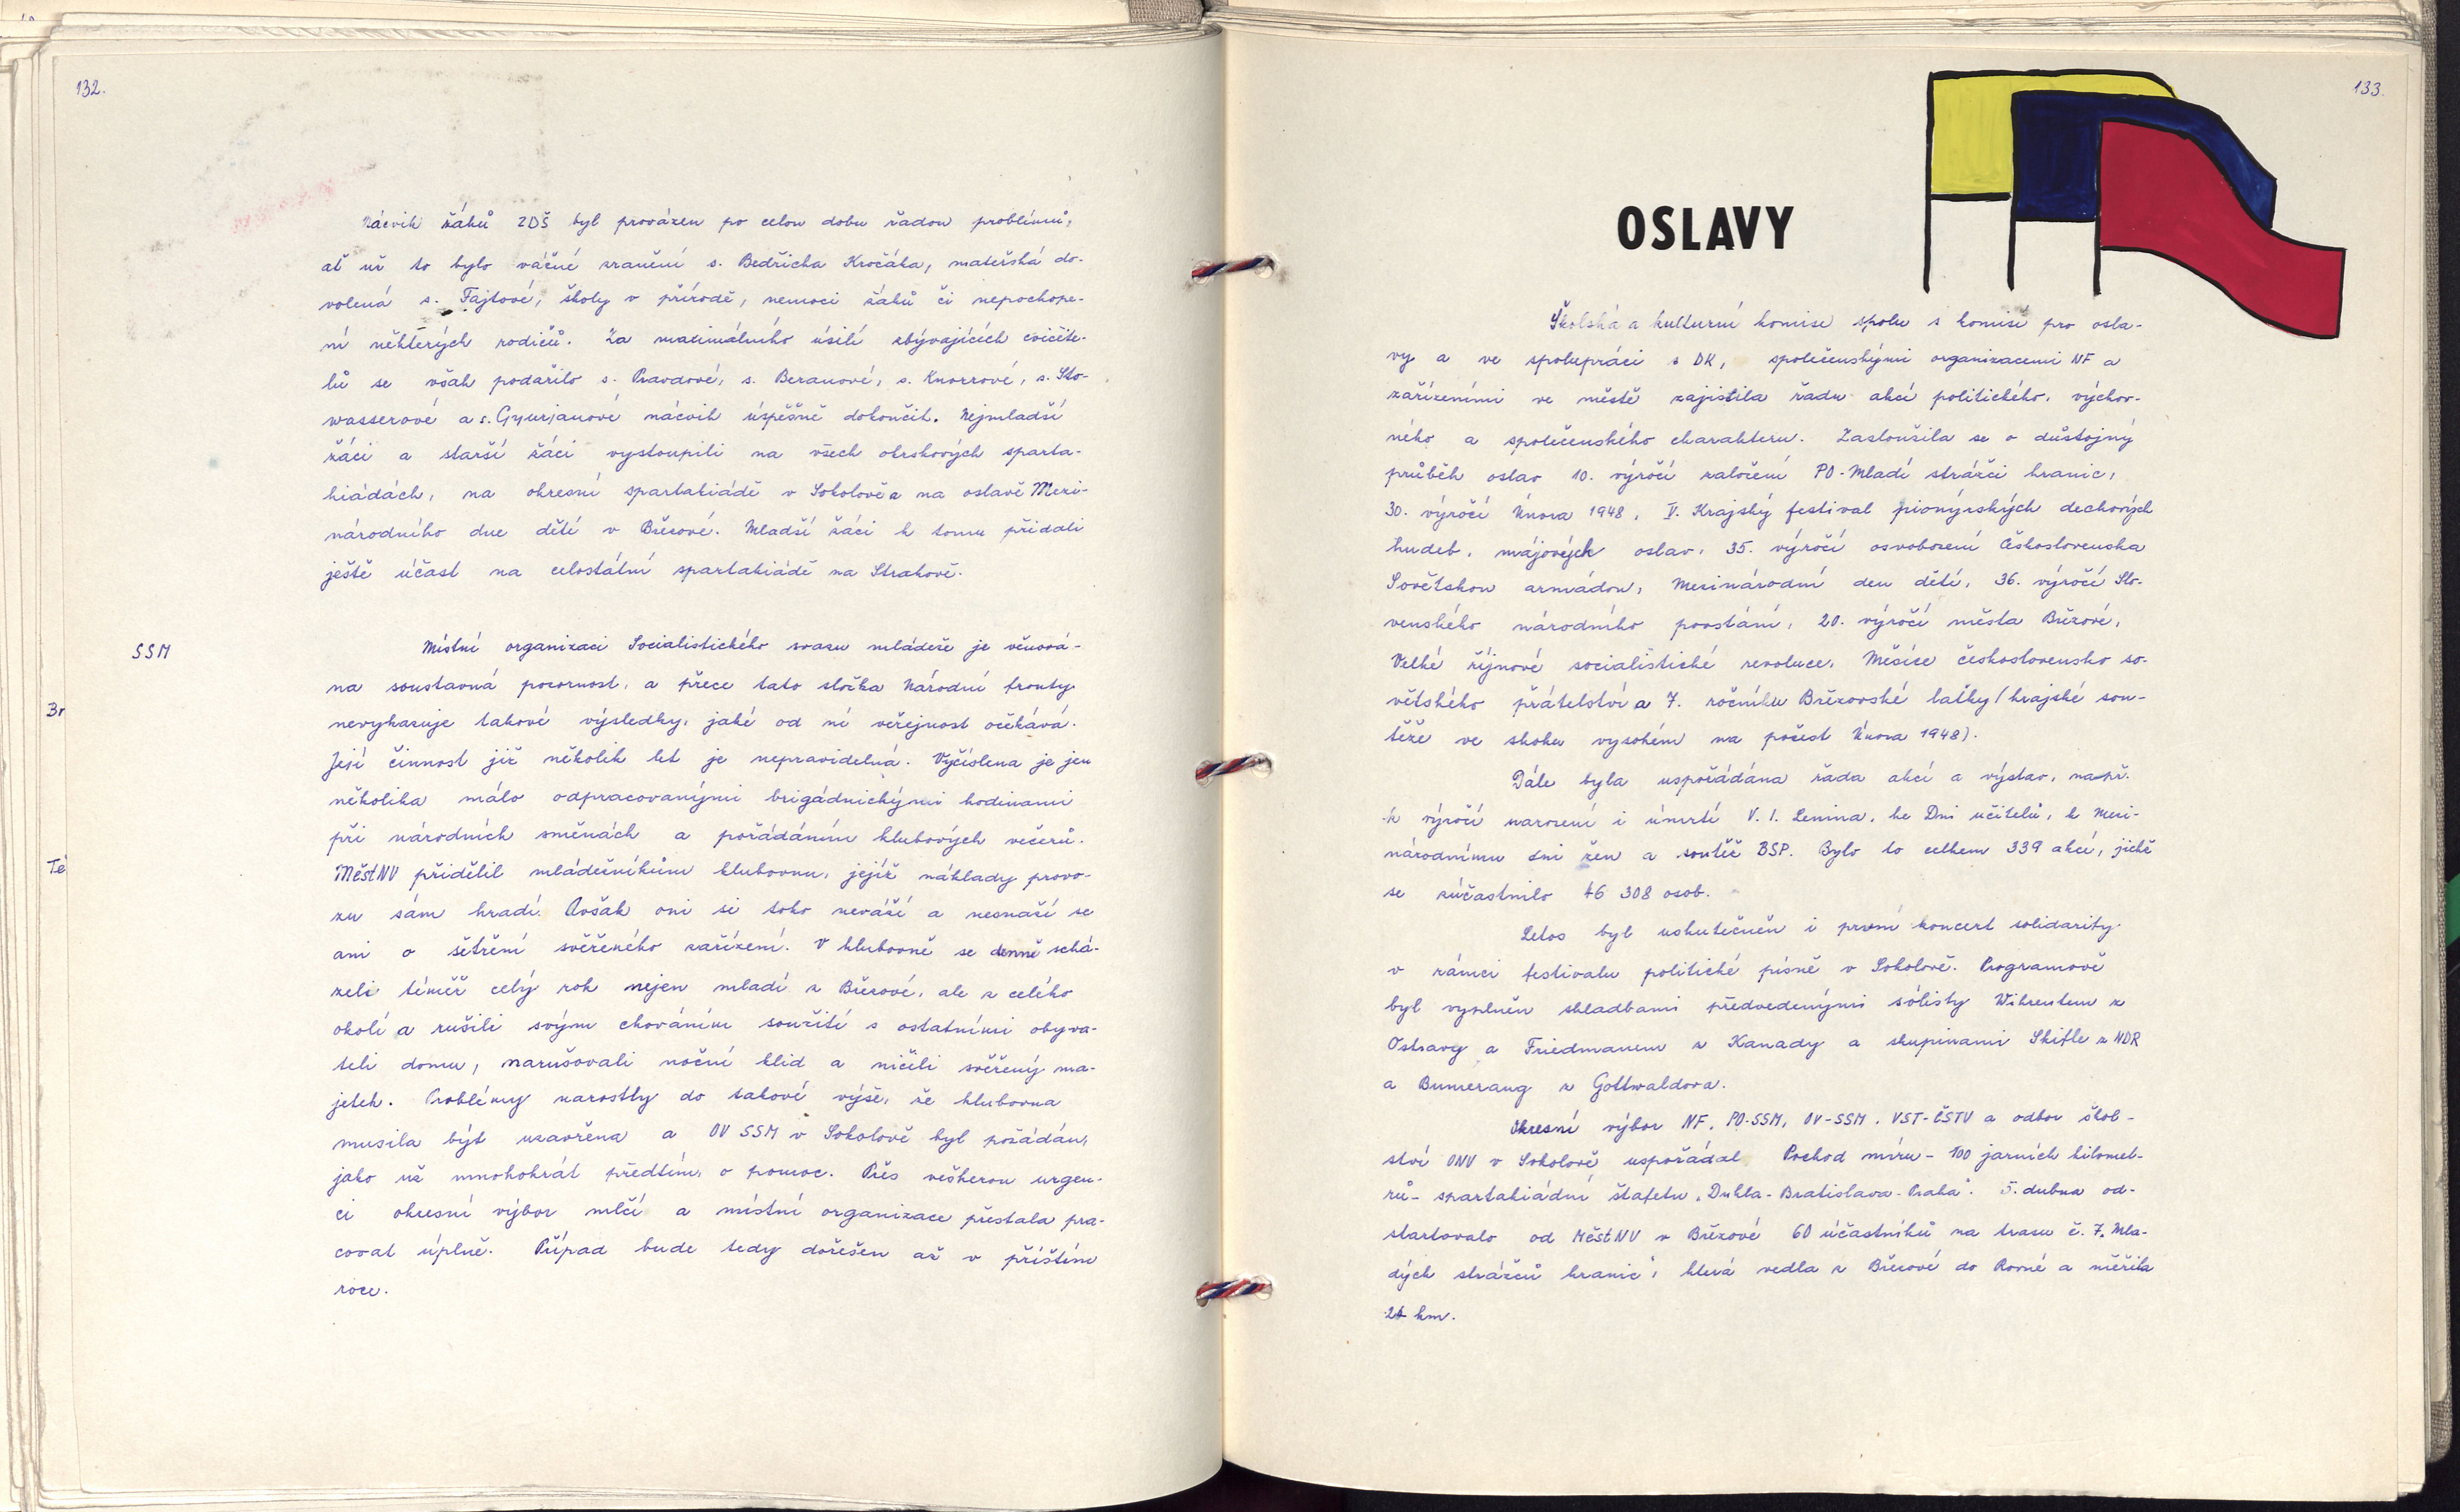 132.
Nácvik žáků ZDŠ byl provázen po celou dobu řadou problémů,
ať už to bylo vážné zranění s. Bedřicha Kročáka, mateřská do-
volená s. Fajtové, školy v přírodě, nemoci žáků či nepochope-
ní některých rodičů. Za maximálního úsilí zbývajících cvičite-
lů se však podařilo s. Pravdové, s. Beranové, s. Knorrové, s. Sto-
wasserové a s. Gyurjanové nácvik úspěšně dokončit. Nejmladší
žáci a starší žáci vystoupili na všech okrskových sparta-
kiádách, na okresní spartakiádě v Sokolově a na oslavě Mezi-
národního dne dětí v Březové. Mladší žáci k tomu přidali
ještě účast na celostátní spartakiádě na Strahově.
SSM
Místní organizaci Socialistického svazu mládeže je věnová-
na soustavná pozornost, a přece tato složka Národní fronty
Br
nevykazuje takové výsledky, jaké od ní veřejnost očekává.
Její činnost již několik let je nepravidelná. Vyčíslena je jen
několika málo odpracovanými brigádnickými hodinami
při národních směnách a pořádáním klubových večerů.
Té
MěstNV přidělil mládežníkům klubovnu, jejíž náklady provo-
zu sám hradí. Avšak oni si toho neváží a nesnaží se
ani o šetření svěřeného zařízení. V klubovně se denně schá-
zeli téměř celý rok nejen mladí z Březové, ale z celého
okolí a rušili svým chováním soužití s ostatními obyva-
teli domu, narušovali noční klid a ničili svěřený ma-
jetek. Problémy narostly do takové výše, že klubovna
musila být uzavřena a OV SSM v Sokolově byl požádán,
jako už mnohokrát předtím, o pomoc. Přes veškerou urgen-
ci okresní výbor mlčí a místní organizace přestala pra-
covat úplně. Případ bude tedy dořešen až v příštím
roce.
133.
OSLAVY
Školská a kulturní komise spolu s komisí pro osla-
vy a ve spolupráci s DK, společenskými organizacemi NF a
zařízeními ve městě zajistila řadu akcí politického, výchov-
ného a společenského charakteru. Zasloužila se o důstojný
průběh oslav 10. výročí založení PO-Mladí strážci hranic,
30. výročí Února 1948, V. Krajský festival pionýrských dechových
hudeb, májových oslav, 35. výročí osvobození Československa
Sovětskou armádou, Mezinárodní den dětí, 36. výročí Slo-
venského národního povstání, 20. výročí města Březové,
Velké říjnové socialistické revoluce, Měsíce československo so-
větského přátelství a 7. ročníku Březovské laťky (krajské sou-
těže ve skoku vysokém na počest Února 1948).
Dále byla uspořádána řada akcí a výstav, např.
k výročí narození i úmrtí V. I. Lenina, ke Dni učitelů, k Mezi-
národnímu dni žen a soutěž BSP. Bylo to celkem 339 akcí, jichž
se zúčastnilo 46 308 osob.
Letos byl uskutečněn i první koncert solidarity
v rámci festivalu politické písně v Sokolově. Programově
byl vyplněn skladbami předvedenými sólisty Wihrentem z
Ostravy a Friedmanem z Kanady a skupinami Skifle z NDR
a Bumerang z Gottwaldova.
Okresní výbor NF, PO-SSM, OV-SSM, VST-ČSTV a odbor škol-
ství ONV v Sokolově uspořádal Pochod míru - 100 jarních kilomet-
rů - spartakiádní štafetu "Dukla - Bratislava - Praha". 5. dubna od-
startovalo od MěstNV v Březové 60 účastníků na trasu č. 7. Mla-
dých strážců hranic", která vedla z Březové do Rovné a měřila
24 km.